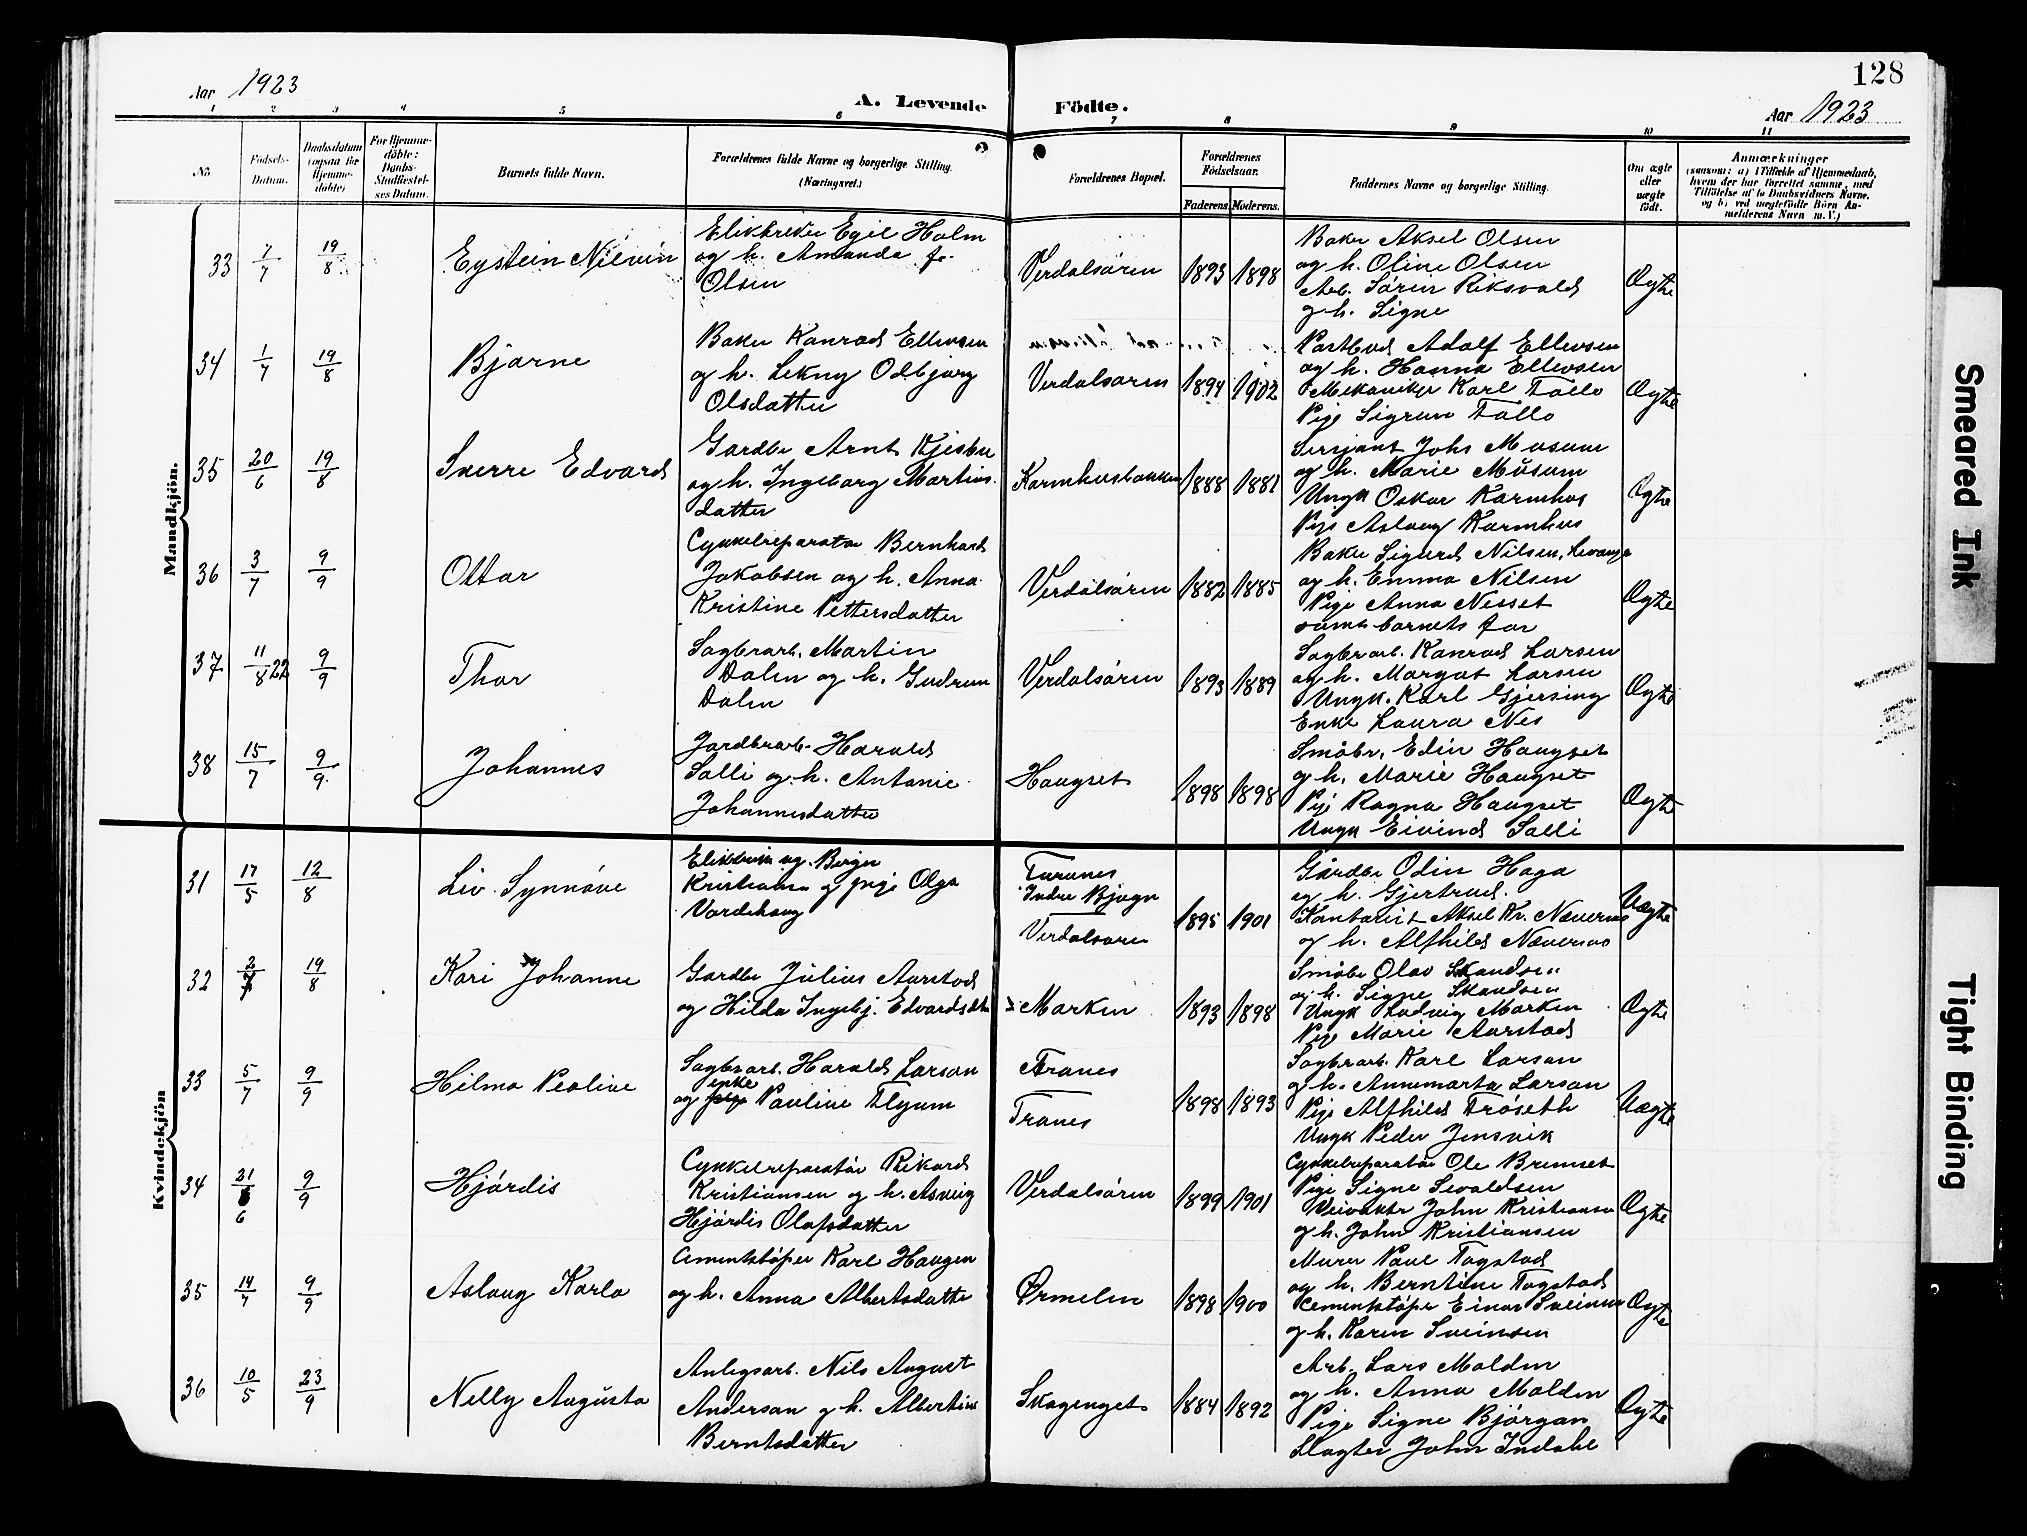 Aar 1923
A. Levende Födte.
128
Aar 1923
1 2 3 4 5 6 7 8 9 10 11
No.
Födsels-
Datum.
Daabsdatum
(ogsaa for
Hjemme-
döbte)
For Hjemme-
döbte:
Daabs-
Stadfæstel-
ses Datum.
Barnets fulde Navn.
Forældrenes fulde Navne og borgerlige Stilling.
(Næringsvei.)
Forældrenes Bopæl.
Forældrenes
Födselsaar.
Faderens. Moderens.
Faddernes Navne og borgerlige Stilling.
Om ægte
eller
uægte
födt.
Anmærkninger
(saasom: a) i Tilfælde af Hjemmedaab,
hvem der har forrettet samme, med
Tilföielse af to Daabsvidners Navne,
og b) ved uægtefödte Börn An-
melderens Navn m. V.)
Mandkjön.
33 7/7 19/8 Eystein
Egil Holm
og h. Amanda f.
Olsen
Verdalsøren 1893 1898
Baker Aksel Olsen
og h. Oline Olsen
Arb. Sørin Riksvold
og h. Signe
Ægte
34 1/7 19/8 Bjarne
Baker Konrad Ellevsen
og h. Lekny Odbjørg
Olsdatter
Verdalsøren 1894 1902
Postbud Adolf Ellevsen
og h. Hanna Ellevsen
Mekaniker Karl Tollo
Pige Sigrun Tollo
Ægte
35 20/6 19/8 Sverre Edvard
Gardbr Arnt Kjesbu
og h. Ingeborg Martins-
datter
Karmhusbakken 1888 1881
Sersjant Johs Musum
og h. Marie Musum
Ungk Oskar Karmhus
Pige Aslaug Karmhus
Ægte
36 3/7 9/9 Ottar
Cykkelreparatør Bernhard
Jakobsen og h. Anna
Kristine Pettersdatter
Verdalsøren 1882 1885
Baker Sigurd Nilsen, Levanger
og h. Emma Nilsen
Pige Anna Nesset
samt barnets far
Ægte
37 11/8 22 9/9 Thor
Sagbrarb. Martin
Dalen og h. Gudrun
Dalen
Verdalsøren 1893 1889
Sagbrarb. Konrad Larsen
og h. Margot Larsen
Ungk. Karl Gjersing
Enke Laura Nes
Ægte
38 15/7 9/9 Johannes
Jordbrarb. Harald
Salli og h. Antonie
Johannesdatter
Haugset 1898 1898
Småbr. Edin Haugset
og h. Marie Haugset
Pige Ragna Haugset
Ungk Eivind Salli
Ægte
Kvindekjön
31 17/5 12/8 Liv Synnøve
Birger
Kristiansen og pige Olga
Vordehaug
Indre
Verdalsøren 1895 1901
Gårdbr Odin Haga
og h. Gjertrud
Kontorist Aksel Kr. Næverness
og h. Alfhild Næverness
Uægte
32 2/7 19/8 Kari Johanne
Gardbr Julius Aarstad
og Hilda Ingebj. Edvardsdtr
Marken 1893 1898
Småbr Olav Skandsen
og h. Signe Skandsen
Ungk Ludvig Marken
Pige Marie Aarstad
Ægte
33 5/7 9/9 Hilma Peoline
Sagbrarb. Harald Larsen
og enke Pauline Flyum
Tranes
Tranes 1898 1893
Sagbrarb. Karl Larsen
og h. Annemarta Larsen
Pige Alfhild Trøseth
Ungk Peder Jensvik
Uægte
34 21/6 9/9 Hjørdis
Cykkelreparatør Rikard
Kristiansen og h. Asveig
Hjørdis Olafsdatter
Verdalsøren 1899 1901
Cykkelreparatør Ole Bremset
Pige Signe Sevaldsen
Veivokter John Kristiansen
og h. John Kristiansen
Ægte
35 14/7 9/9 Aslaug Karla
Cementstøper Karl Haugen
og h. Anna Albertsdatter
Ørmelen 1898 1900
Murer Paul Togstad
og h. Berntine Togstad
Cementstøper Einar Sveinsen
og h. Karen Sveinsen
Ægte
36 10/5 23/9 Nelly Augusta
Anlegsarb. Nils August
Anderson og h. Albertine
Berntsdatter
Skogenget 1884 1892
Arb. Lars Molden
og h. Anna Molden
Pige Signe Bjørgan
Slagter John Indahl
Ægte
Smeared Ink
Tight Binding